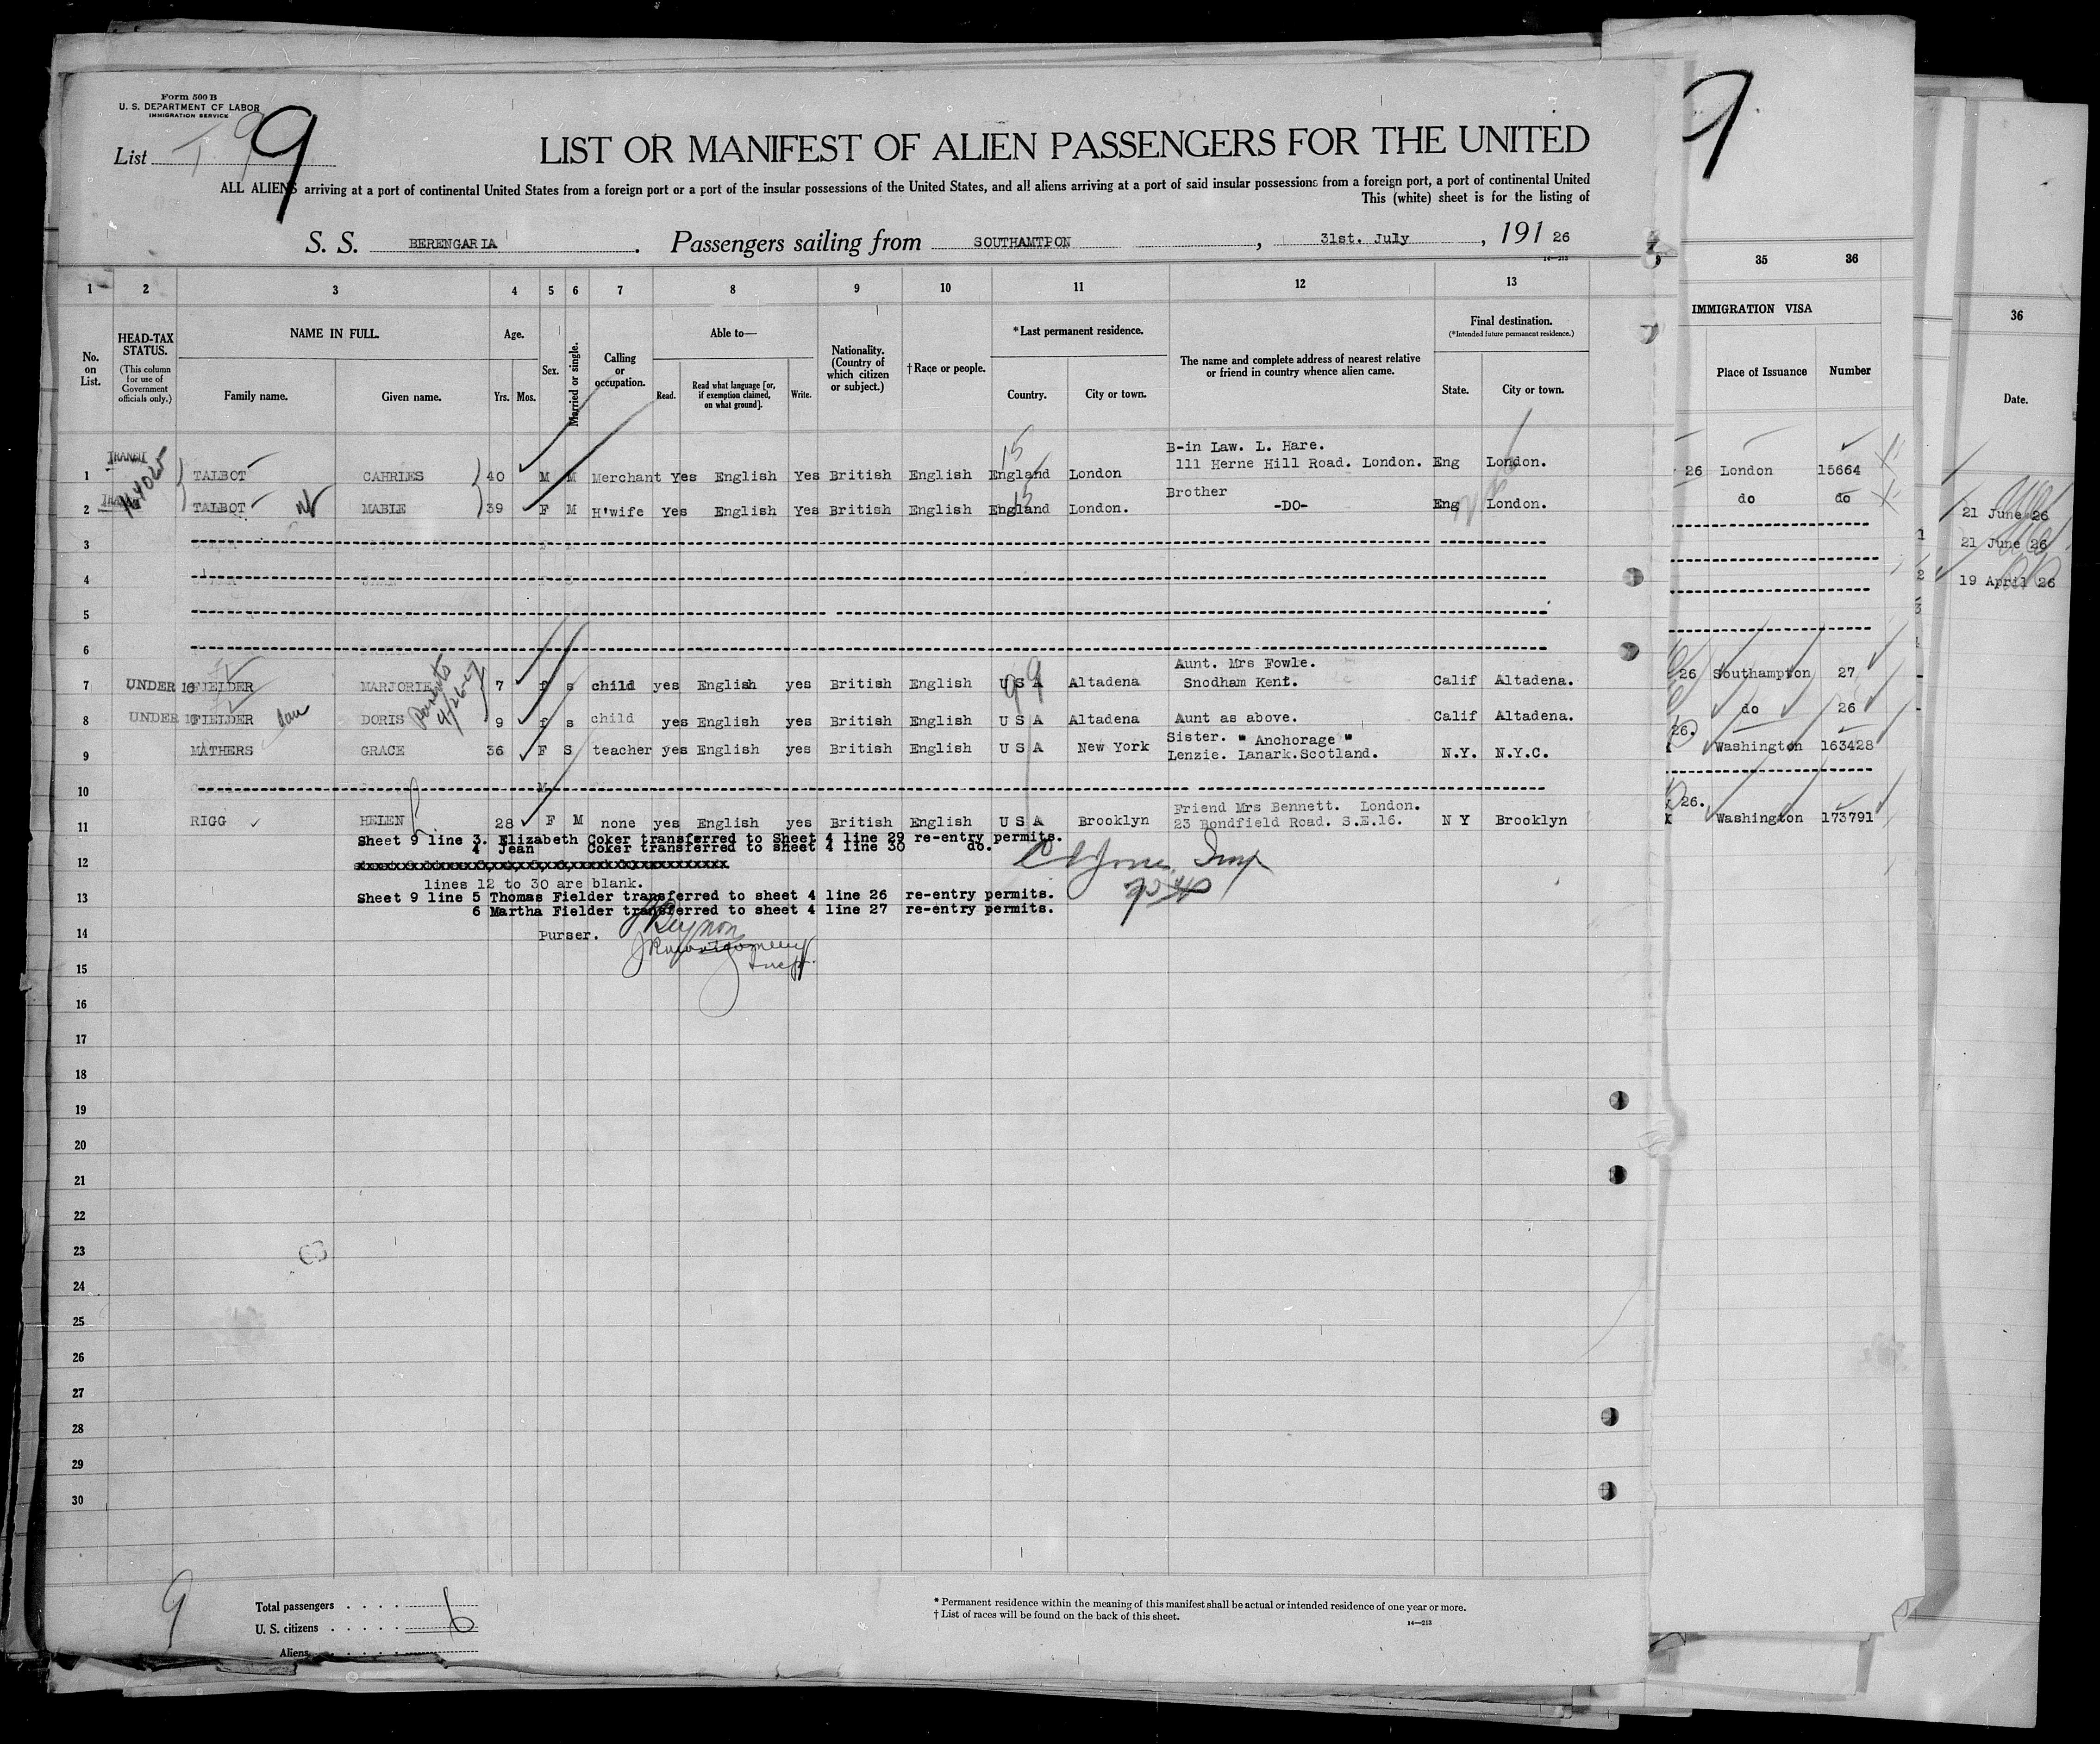 Form 500 B
U. S. DEPARTMENT OF LABOR
IMMIGRATION SERVICE
List 9
LIST OR MANIFEST OF ALIEN PASSENGERS FOR THE UNITED
ALL ALIENS arriving at a port of continental United States from a foreign port or a port of the insular possessions of the United States, and all aliens arriving at a port of said insular possessions from a foreign port, a port of continental United
This (white) sheet is for the listing of
S. S. BERENGARIA. Passengers sailing from SOUTHAMTPON, 31st. July, 191 26
14—213
1 2 3 4 5 6 7 8 9 10 11 12 13
No. on List.
HEAD-TAX STATUS.
(This column for use of Government officials only.)
NAME IN FULL.
Family name. Given name.
Age.
Yrs. Mos.
Sex.
Married or single.
Calling or occupation.
Able to—
Read. Read what language [or, if exemption claimed, on what ground]. Write.
Nationality. (Country of which citizen or subject.)
†Race or people.
*Last permanent residence.
Country. City or town.
The name and complete address of nearest relative or friend in country whence alien came.
Final destination.
(*Intended future permanent residence.)
State. City or town.
15 B-in Law. L. Hare.
1 TRANSIT TALBOT CAHRLES 40 M M Merchant Yes English Yes British English England London 111 Herne Hill Road. London. Eng London.
15 Brother
2 TALBOT MABLE 39 F M H'wife Yes English Yes British English England London. -DO- Eng London.
3
4
5
6
Aunt. Mrs Fowle.
7 UNDER 16 FIELDER MARJORIE 7 f s child yes English yes British English U S A Altadena Snodham Kent. Calif Altadena.
Parents 4/26-27
8 UNDER 16 FIELDER DORIS 9 f s child yes English yes British English U S A Altadena Aunt as above. Calif Altadena.
Sister. " Anchorage "
9 MATHERS GRACE 36 F S teacher yes English yes British English U S A New York Lenzie. Lanark.Scotland. N.Y. N.Y.C.
10
Friend Mrs Bennett. London.
11 RIGG HELEN 28 F M none yes English yes British English U S A Brooklyn 23 Bondfield Road. S.E.16. N Y Brooklyn
Sheet 9 line 3. Elizabeth Coker transferred to Sheet 4 line 29 re-entry permits.
4 Jean Coker transferred to sheet 4 line 30 do.
12
lines 12 to 30 are blank.
13 Sheet 9 line 5 Thomas Fielder transferred to sheet 4 line 26 re-entry permits.
6 Martha Fielder transferred to sheet 4 line 27 re-entry permits.
14 Purser.
15
16
17
18
19
20
21
22
23
24
25
26
27
28
29
30
9
Total passengers . . . .
U. S. citizens . . . . . 6
Aliens
* Permanent residence within the meaning of this manifest shall be actual or intended residence of one year or more.
† List of races will be found on the back of this sheet.
14—213
9
35 36
IMMIGRATION VISA
Place of Issuance Number
26 London 15664
do do
26 Southampton 27
do 26
26.
Washington 163428
26.
Washington 173791
36
Date.
21 June 26
21 June 26
19 April 26
1
2
3